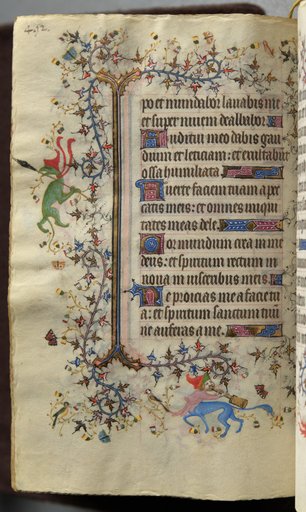 po et mundabor lavabis me
et super nivem dealbabor.
Auditui meo dabis gau
dium et leticiam: et exultabunt
ossa humiliata
Averte faciem tuam a pec
catis meis: et omnes iniqui
tates meas dele.
Cor mundum crea in me
deus: et spiritum rectum in
nova in visceribus meis.
Ne proicias me a facie tu
a: et spiritum sanctum tuu
ne auferas a me.